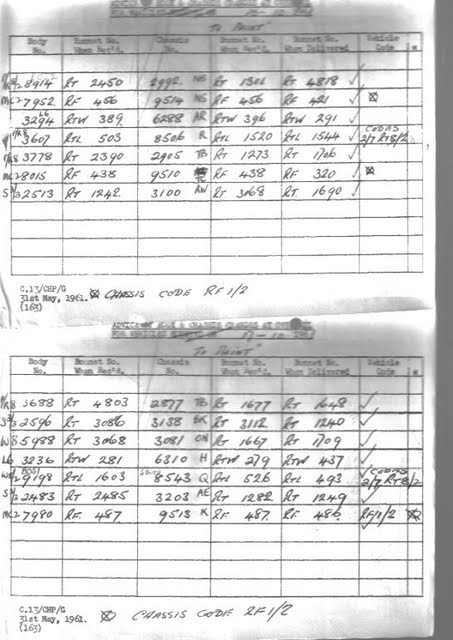 ADVICE OF BODY & CHASSIS CHANGES AT
FOR VEHICLES
TO PAINT
Body No. Bonnet No. When Rec'd. Chassis No. Bonnet No. When Rec'd. Bonnet No. When Delivered Vehicle Code
8914 RT 2450 2992 NB RT 1301 RT 4818 ✓
MC2 7952 RF 456 9514 NS RF 456 RF 421 ✓
3294 RTW 389 6288 AR RTW 396 RTW 291 ✓
3607 RTL 503 8506 R RTL 1520 RTL 1544 ✓ CODAS 2/7 RT8/2
3778 RT 2390 2905 TB RT 1273 RT 1706 ✓
MC2 8015 RF 438 9510 RF 438 RF 320 ✓
S3/2 2513 RT 1242 3100 AW RT 3068 RT 1690 ✓
C.13/CHP/G
31st May, 1961. CHASSIS CODE RF 1/2
(163)
ADVICE OF BODY & CHASSIS CHANGES AT
FOR VEHICLES
TO PAINT
Body No. Bonnet No. When Rec'd. Chassis No. Bonnet No. When Rec'd. Bonnet No. When Delivered Vehicle Code
3688 RT 4803 2877 TB RT 1677 RT 1648 ✓
2596 RT 3086 3158 BK RT 3112 RT 1240 ✓
5988 RT 3068 3081 RT 1667 RT 1709 ✓
L6 3236 RTW 281 6310 H RTW 279 RTW 437 ✓
9198 RTL 1603 8543 Q RTL 526 RTL 493 ✓ CODAS 2/7 RT8/2
2483 RT 2485 3203 AE RT 1282 RT 1249 ✓
MC2 7980 RF 487 9513 K RF 487 RF 486 ✓ RF/1/2
C.13/CHP/G
31st May, 1961. CHASSIS CODE RF 1/2
(163)